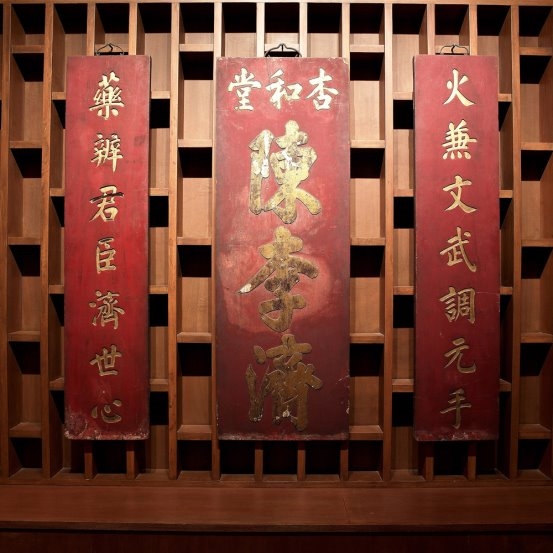 火兼文武調元手
杏和堂
陳李濟
藥辨君臣濟世心